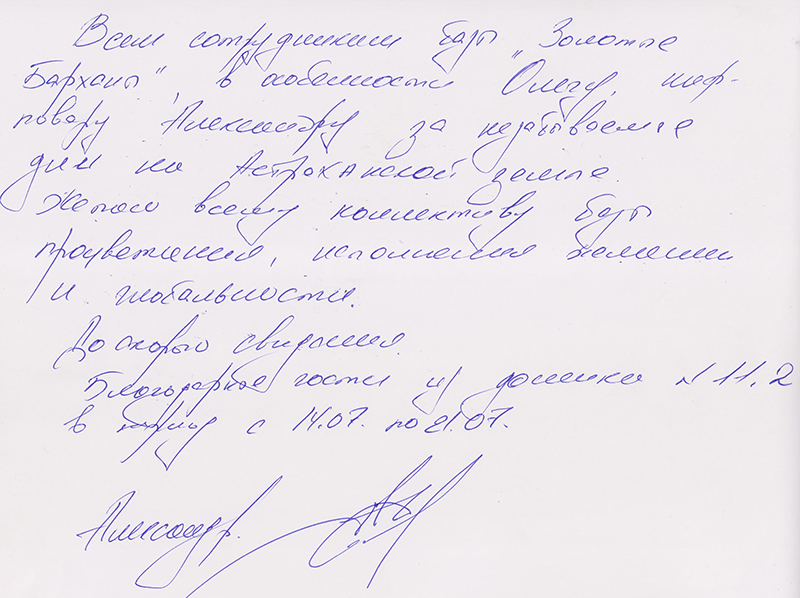 Всем сотрудникам базы „Золотые
Барханы", в особенности Олегу, шеф-
повару Александру за незабываемые
дни на Астраханской земле.
Желаю всему коллективу базы
процветания, исполнения желаний
и глобальности.
До скорого свидания.
Благодарные гости из домика №11,2
в период с 14.07. по 21.07.
Александр.